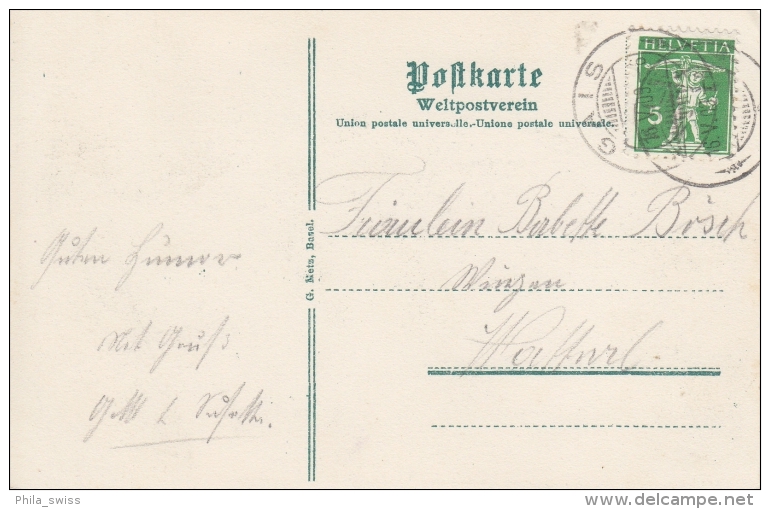 HELVETIA
5
GAIS
Postkarte
Weltpostverein
Union postale universelle.-Unione postale universale.
Fräulein Babette Bösch
Wattwil.
Guten Humor
Mit Gruß
G. Metz, Basel.
Phila_swiss
delcampe.net